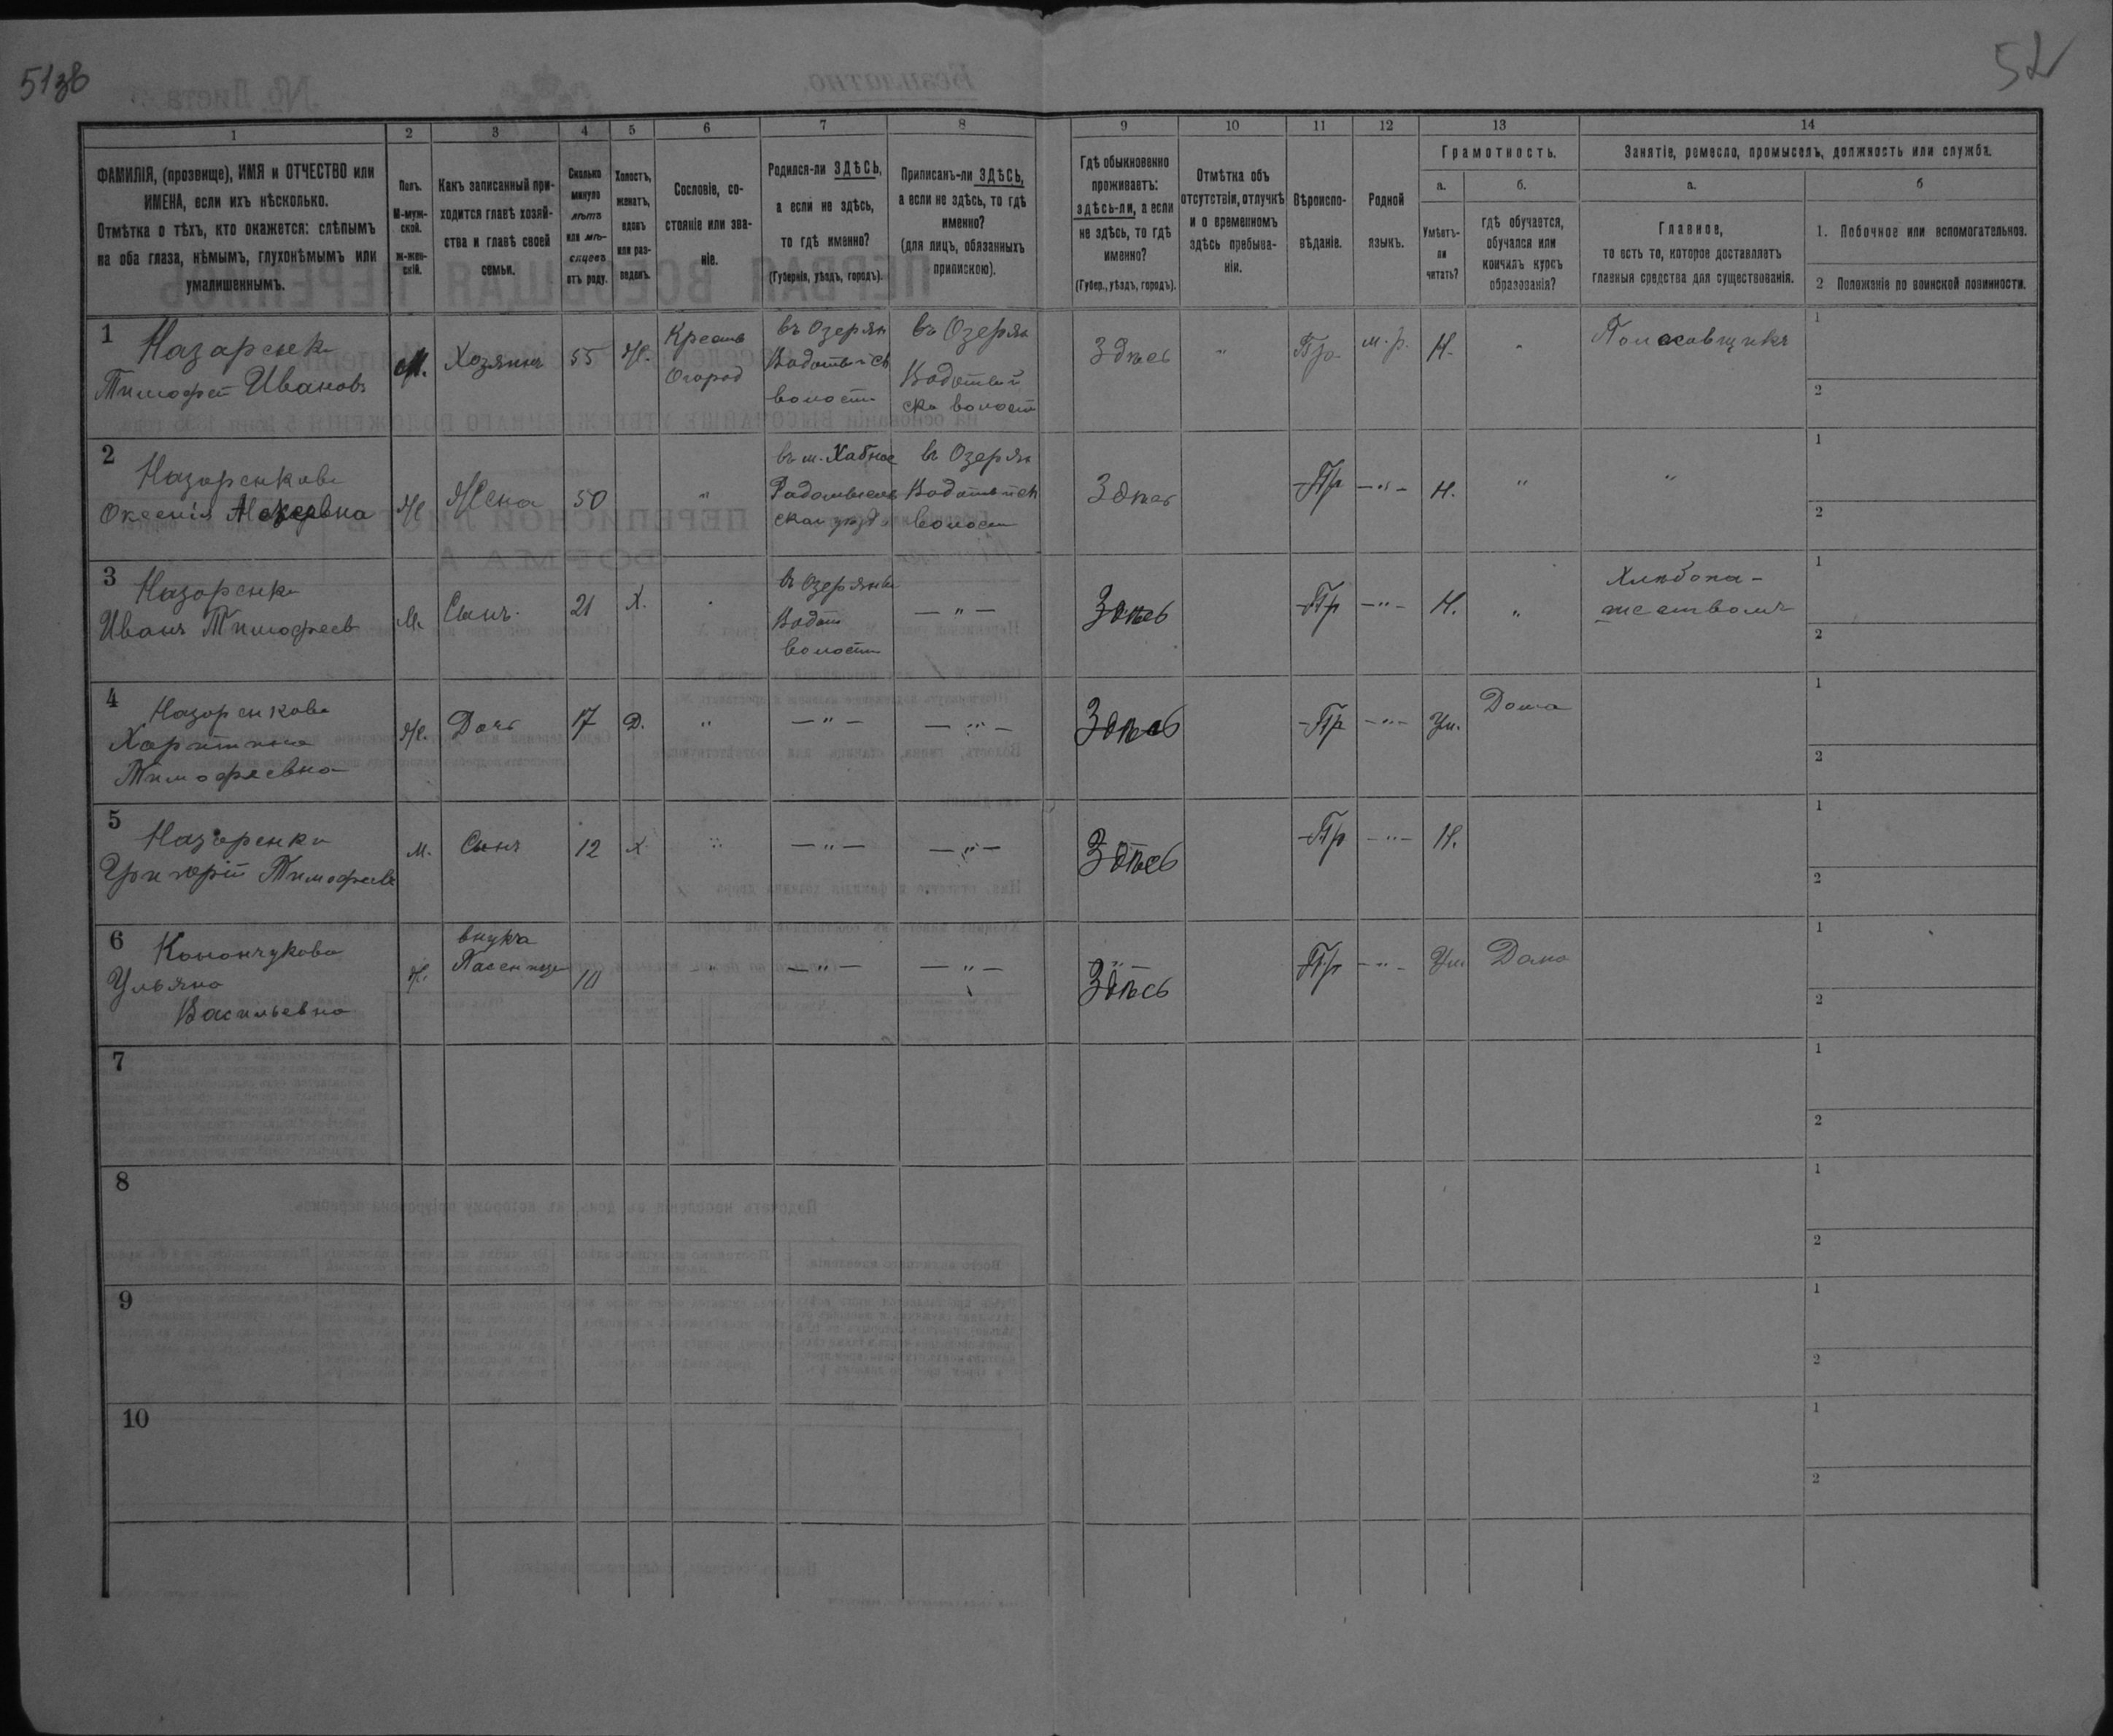 51 зв
52
1
2
3
4
5
6
7
8
9
10
11
12
13
14
ФАМИЛІЯ, (прозвище), ИМЯ и ОТЧЕСТВО или
ИМЕНА, если ихъ нѣсколько.
Отмѣтка о тѣхъ, кто окажется: слѣпымъ
на оба глаза, нѣмымъ, глухонѣмымъ или
умалишеннымъ.
Полъ.
М-муж-
ской.
Ж-жен-
скій.
Какъ записанный при-
ходится главѣ хозяй-
ства и главѣ своей
семьи.
Сколько
минуло
лѣтъ
или мѣ-
сяцевъ
отъ роду.
Холостъ,
женатъ,
вдовъ
или раз-
веденъ.
Сословіе, со-
стояніе или зва-
ніе.
Родился-ли ЗДѢСЬ,
а если не здѣсь,
то гдѣ именно?
(Губернія, уѣздъ, городъ).
Приписанъ-ли ЗДѢСЬ,
а если не здѣсь, то гдѣ
именно?
(для лицъ, обязанныхъ
припискою).
Гдѣ обыкновенно
проживаетъ:
здѣсь-ли, а если
не здѣсь, то гдѣ
именно?
(Губер., уѣздъ, городъ).
Отмѣтка объ
отсутствіи, отлучкѣ
и о временномъ
здѣсь пребыва-
ніи.
Вѣроиспо-
вѣданіе.
Родной
языкъ.
Грамотность.
а.
б.
Умѣетъ-
ли
читать?
гдѣ обучается,
обучался или
кончилъ курсъ
образованія?
Занятіе, ремесло, промыселъ, должность или служба.
а.
б
Главное,
то есть то, которое доставляетъ
главныя средства для существованія.
1. Побочное или вспомогательное.
2 Положеніе по воинской повинности.
1
Назаренко
Тимофей Ивановъ
М.
Хозяинъ
55
Ж.
Крестъ
Огород
въ Озерян
Водотыйск
волости
въ Озерян
Водотый
ско волости
Здѣсь
"
Пр.
м.р.
Н.
"
1
2
2
Назаренкова
Оксенія
Ж
Жена
50
"
въ м. Хабное
Радомысль
скаго уѣзд
въ Озерян
Водотыйск
волости
Здѣсь
Пр
— " —
Н.
"
"
1
2
3
Назаренко
Иванъ Тимофеевъ
М.
Сынъ.
21
Х.
"
въ Озерянке
Водот
волости
— " —
Здѣсь
Пр
— " —
Н.
"
Хлѣбопа-
шествомъ
1
2
4
Назаренкова
Харитина
Тимофеевна
Ж.
Дочь
17
Д.
"
— " —
— " —
Здѣсь
Пр
— " —
Ум.
Дома
1
2
5
Назаренко
Григорій Тимофеевъ
М.
Сынъ
12
Х
"
— " —
— " —
Здѣсь
Пр
— " —
Н.
1
2
6
Конончукова
Ульяна
Васильевна
Ж.
внука
10
"
— " —
— " —
— " —
Здѣсь
Пр
— " —
Ум.
Дома
1
2
7
1
2
8
1
2
9
1
2
10
1
2